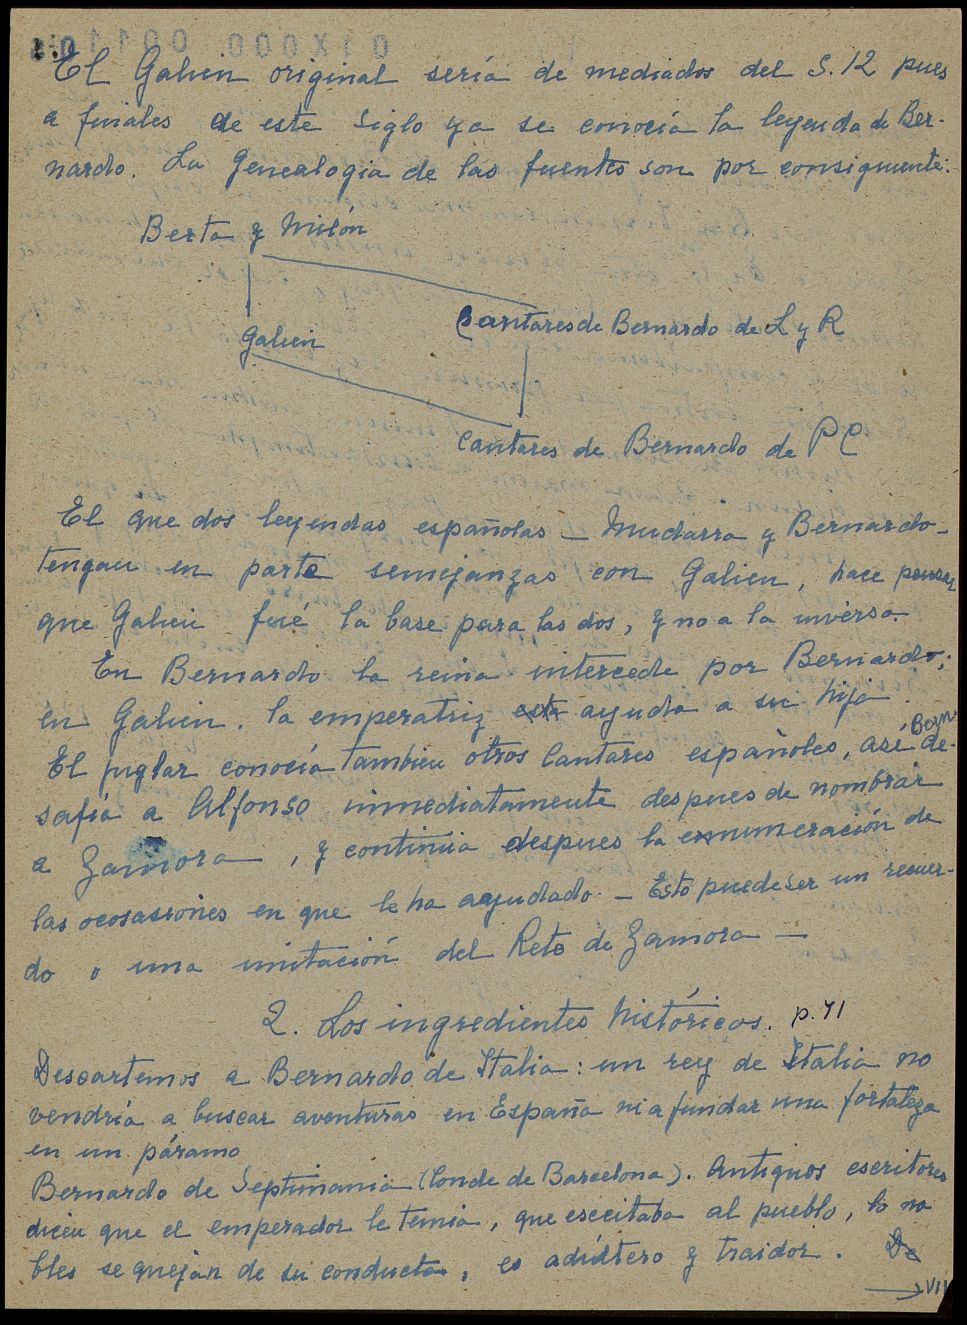 El Galien original sería de mediados del S. 12 pues
a finales de este siglo ya se conocía la leyenda de Ber-
nardo. La Genealogia de las fuentes son por consiguiente:
Berta y Milón
Galien
Cantares de Bernardo de L y R
Cantares de Bernardo de P C
El que dos leyendas españolas - Mudarra y Bernardo -
tengan en parte semejanzas con Galien, hace pensar
que Galien fué la base para las dos, y no a la inversa.
En Bernardo la reina intercede por Bernardo;
en Galien. la emperatriz ayuda a su hijo.
El juglar conocía tambien otros Cantares españoles, así Bern. de-
safía a Alfonso inmediatamente despues de nombrar
a Zamora, y continua despues la enumeración de
las ocosassiones en que le ha ayudado - Esto puede ser un recuer-
do o una imitación del Reto de Zamora -
2. Los ingredientes históricos. p. 71
Descartemos a Bernardo de Italia: un rey de Italia no
vendría a buscar aventuras en España ni a fundar una fortaleza
en un páramo
Bernardo de Septimania (Conde de Barcelona). Antiguos escritores
dicen que el emperador le temia, que escitaba al pueblo, lo no
bles se quejan de su conducta, es adúltero y traidor. De
→ VII